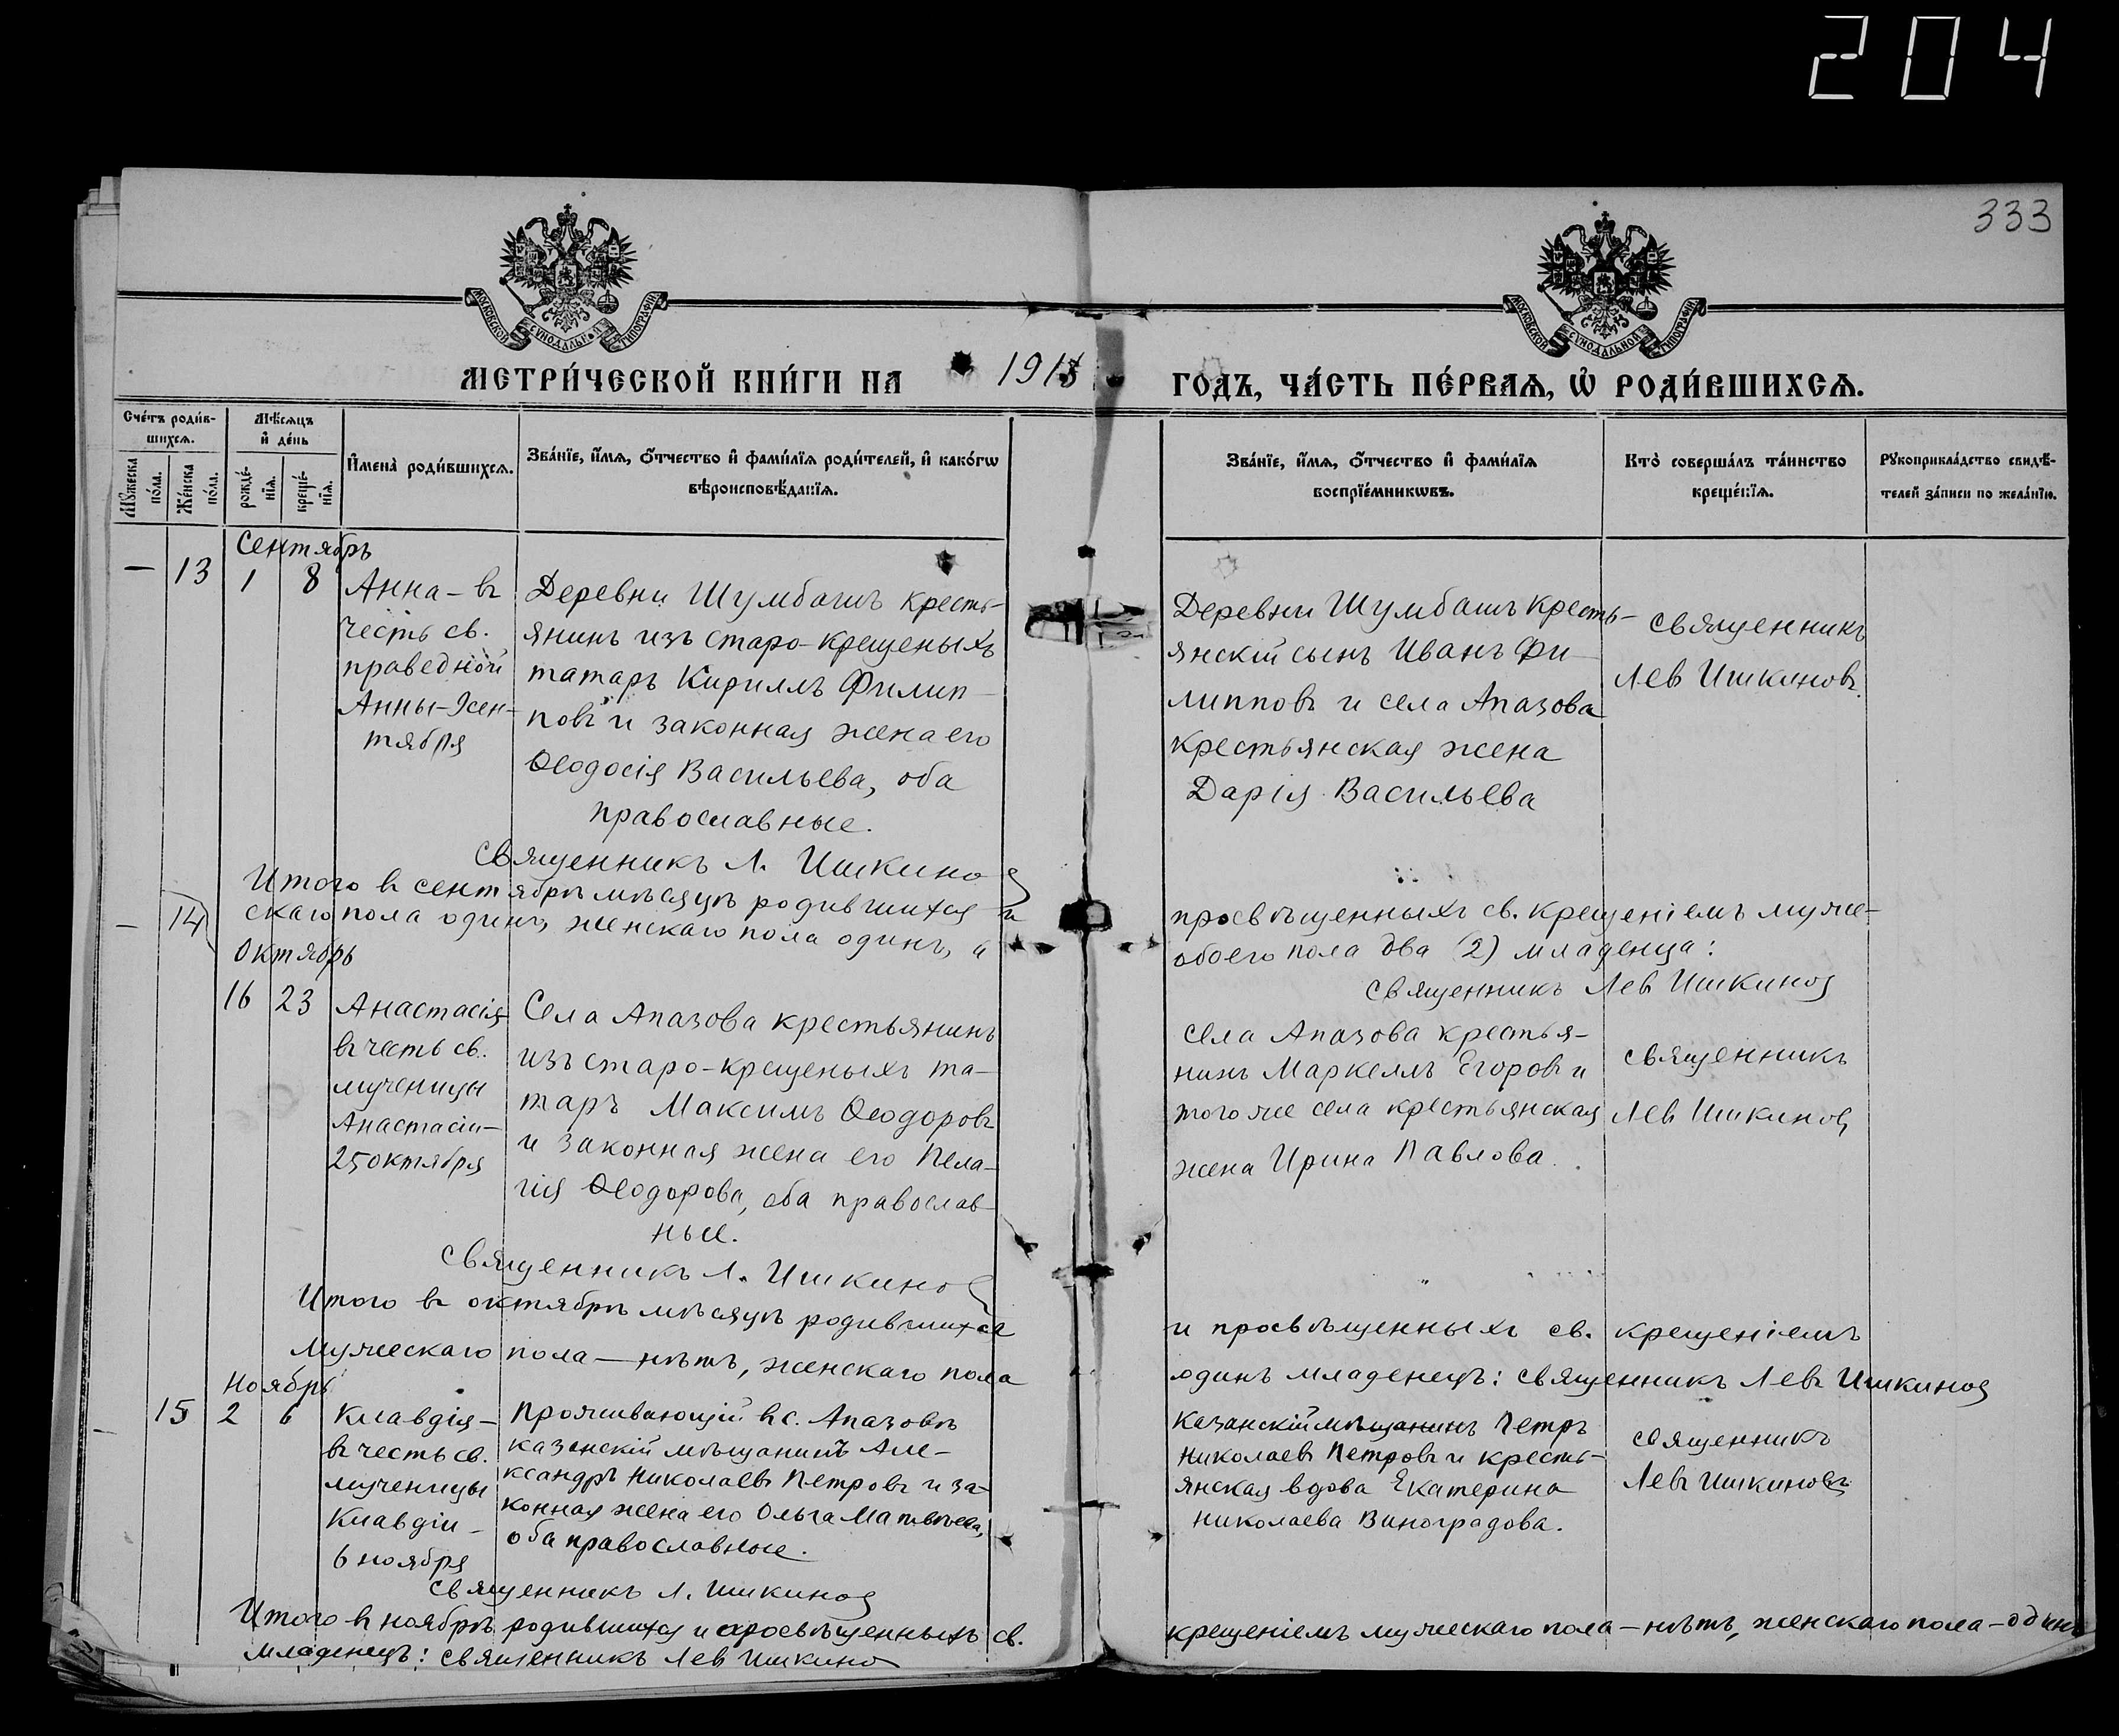 204
333
МОСКОВСКОЙ СѴНОДАЛЬНОЙ ТИПОГРАФІИ
МОСКОВСКОЙ СѴНОДАЛЬНОЙ ТИПОГРАФІИ
МЕТРИ́ЧЕСКОЙ КНИ́ГИ НА 191 ГОДЪ, ЧА́СТЬ ПЕ́РВАЯ, Ѿ РОДИ́ВШИХСЯ.
Сче́тъ роди́в-
шихся.
Мꙋ́жеска
по́ла.
Же́нска
по́ла.
Мѣ́сяцъ
и҆ де́нь
рожде́-
нїя.
креще́-
нїя.
И҆мена̀ роди́вшихся.
Зва́нїе, и҆́мя, ѻ҆́тчество и҆ фами́лїя роди́телей, и҆ како́гѡ
вѣроисповѣ́данїя.
Зва́нїе, и҆́мя, ѻ҆́тчество и҆ фами́лїя
воспрїе́мникѡвъ.
Кто̀ соверша́лъ та́инство
креще́нїя.
Рꙋкоприкла́дство свидѣ́-
телей за́писи по жела́нїю.
Сентябрь
— 13 1 8
Анна - въ
честь св.
праведной
Анны - 9 сен-
тября
Деревни Шумбашъ кресть-
янинъ изъ старо-крещеныхъ
татаръ Кириллъ Филип-
повъ и законная жена его
Ѳеодосія Васильева, оба
православные.
Священникъ Л. Ишкинов
Деревни Шумбашъ Кресть-
янскій сынъ Иванъ Фи-
липповъ и села Апазова
крестьянская жена
Дарія Васильева
Священникъ
Левъ Ишкиновъ.
Итого въ сентябрѣ мѣсяцѣ родившихся и просвѣщенныхъ св. крещеніемъ муже-
скаго пола одинъ, женскаго пола одинъ, а обоего пола два (2) младенца:
Священникъ Левъ Ишкинов
Октябрь
— 14 16 23
Анастасія
въ честь св.
мученицы
Анастасіи -
25 октября
Села Апазова крестьянинъ
изъ старо-крещеныхъ та-
таръ Максимъ Ѳеодоровъ
и законная жена его Пела-
гія Ѳеодорова, оба православ-
ные.
Священникъ Л. Ишкинов
села Апазова крестья-
нинъ Маркеллъ Егоровъ и
того же села крестьянская
жена Ирина Павлова.
Священникъ
Левъ Ишкинов
Итого въ октябрѣ мѣсяцѣ родившихся и просвѣщенныхъ св. крещеніемъ
мужескаго пола — нѣтъ, женскаго пола одинъ младенецъ: Священникъ Левъ Ишкинов
Ноябрь
— 15 2 6
Клавдія -
въ честь св.
мученицы
Клавдіи -
6 ноября
Проживающій въ с. Апазовѣ
казанскій мѣщанинъ Але-
ксандръ Николаевъ Петровъ и за-
конная жена его Ольга Матвѣева,
оба православные.
Священникъ Л. Ишкинов
Казанскій мѣщанинъ Петръ
Николаевъ Петровъ и кресть-
янская вдова Екатерина
Николаева Виноградова.
Священникъ
Левъ Ишкиновъ
Итого въ ноябрѣ родившихся и просвѣщенныхъ св. крещеніемъ мужескаго пола — нѣтъ, женскаго пола - одинъ
младенецъ: Священникъ Левъ Ишкинов